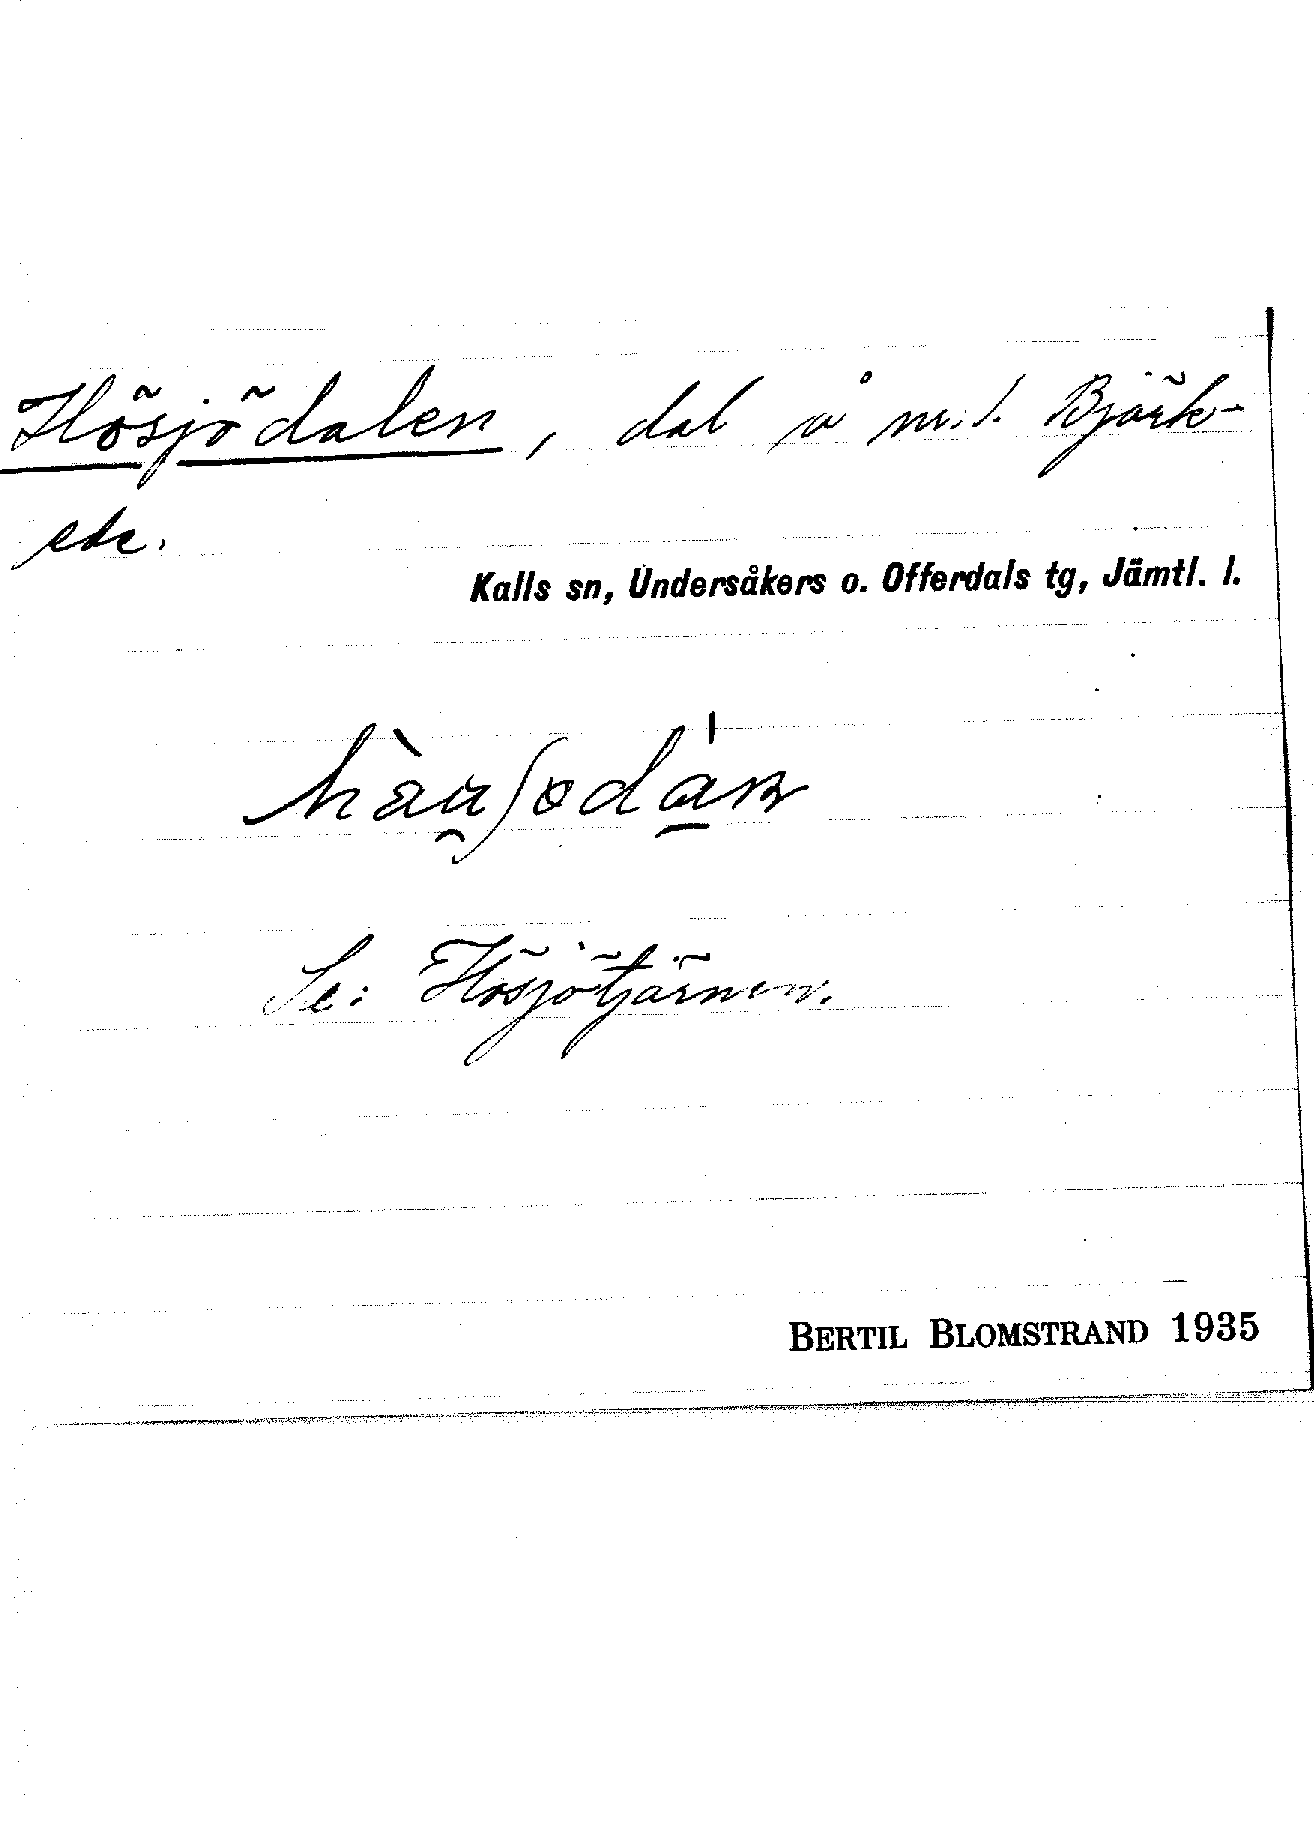 Hösjödalen, dal å m.l. Björk-
ede.
Kalls sn, Undersåkers o. Offerdals tg, Jämtl. l.
Se: Hösjötjärnen.
BERTIL BLOMSTRAND 1935